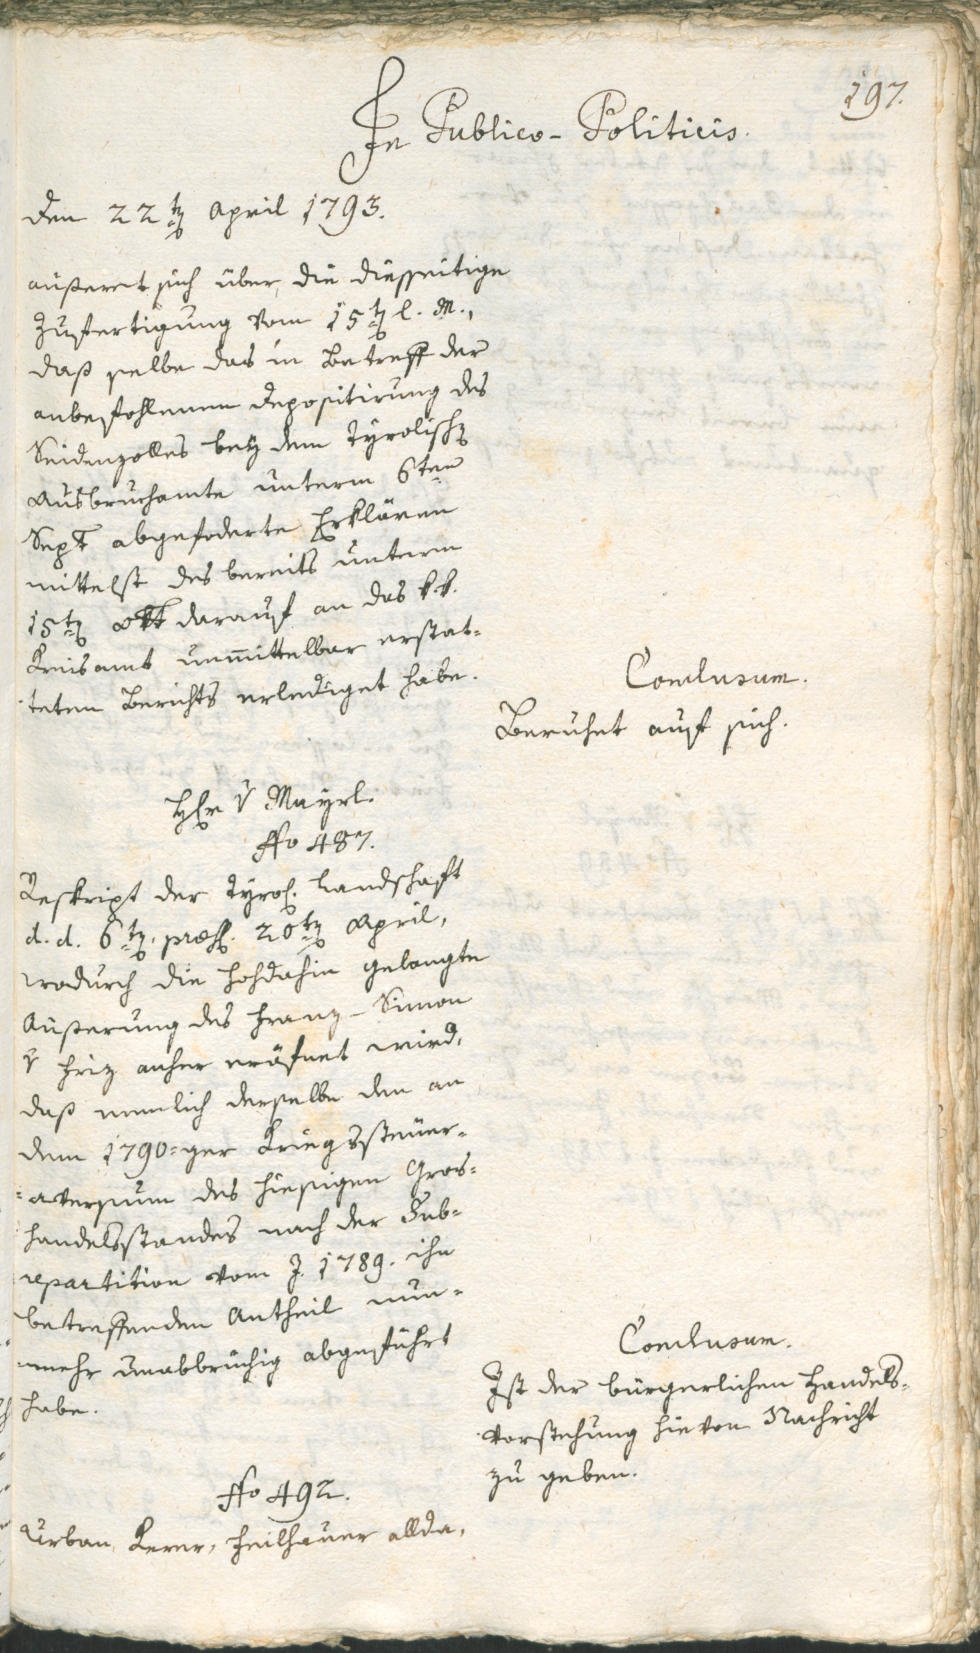 197.
In Publico-Politicis.
den 22t͠ April 1793.
äußeret sich über, die diesseitige
Zufertigung vom 15t͠ l. M.,
daß selbe das in Betreff der
anbefohlenen Depositirung des
Seidenzolles bey dem Tyrolisch͠
Ausbruchamte unterm 6ten
Sept abgefoderte Erklären
mittelst des bereits unterm
15t͠ Okt darauf an das k.k.
Kreisamt unmittelbar erstat=
teten Berichts erlediget habe.
Conclusum.
Beruhet auf sich.
Hr v Mayrl.
No 487.
Reskript der Tyrol. Landschaft
d. d. 6t͠, præs. 20t͠ April,
wodurch die hohdahin gelangte
Äußerung des Franz-Simon
v Friz anher eröfnet wird,
daß nemlich derselbe den an
dem 1790=ger Kriegssteuer=
=aversum des hiesigen Gros=
handelsstandes nach der Sub=
repartition vom J. 1789. ihn
betreffenden Antheil nun=
mehr unabbrüchig abgeführt
habe.
Conclusum.
Ist der bürgerlichen Handels=
vorstehung hievon Nachricht
zu geben.
No 492.
Urban Kerer, Feilhauer allda,